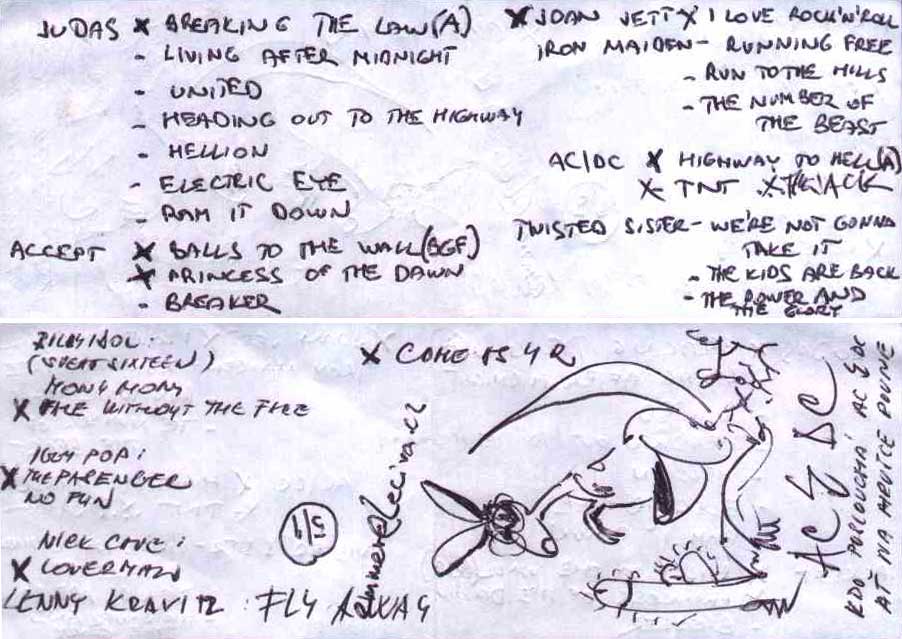 JUDAS X BREAKING THE LAW (A)
- LIVING AFTER MIDNIGHT
- UNITED
- HEADING OUT TO THE HIGHWAY
- HELLION
- ELECTRIC EYE
- RAM IT DOWN
ACCEPT X BALLS TO THE WALL (BGF)
X PRINCESS OF THE DAWN
- BREAKER
X JOAN JETT X I LOVE ROCK'N'ROLL
IRON MAIDEN - RUNNING FREE
- RUN TO THE HILLS
- THE NUMBER OF
THE BEAST
AC/DC X HIGHWAY TO HELL (A)
X TNT X THE JACK
TWISTED SISTER - WE'RE NOT GONNA
TAKE IT
- THE KIDS ARE BACK
- THE POWER AND
THE GLORY
BILLY IDOL:
(SWEAT SIXTEEN)
MONY MONY
X
WITHOUT THE
IGGY POP:
X THE PASENGER
NO FUN
NICK CAVE:
X LOVERMAN
LENNY KRAVITZ: FLY AWAY
X COME AS U R
5/1
AC DC
KDO POSLOUCHÁ AC DC
AŤ NA